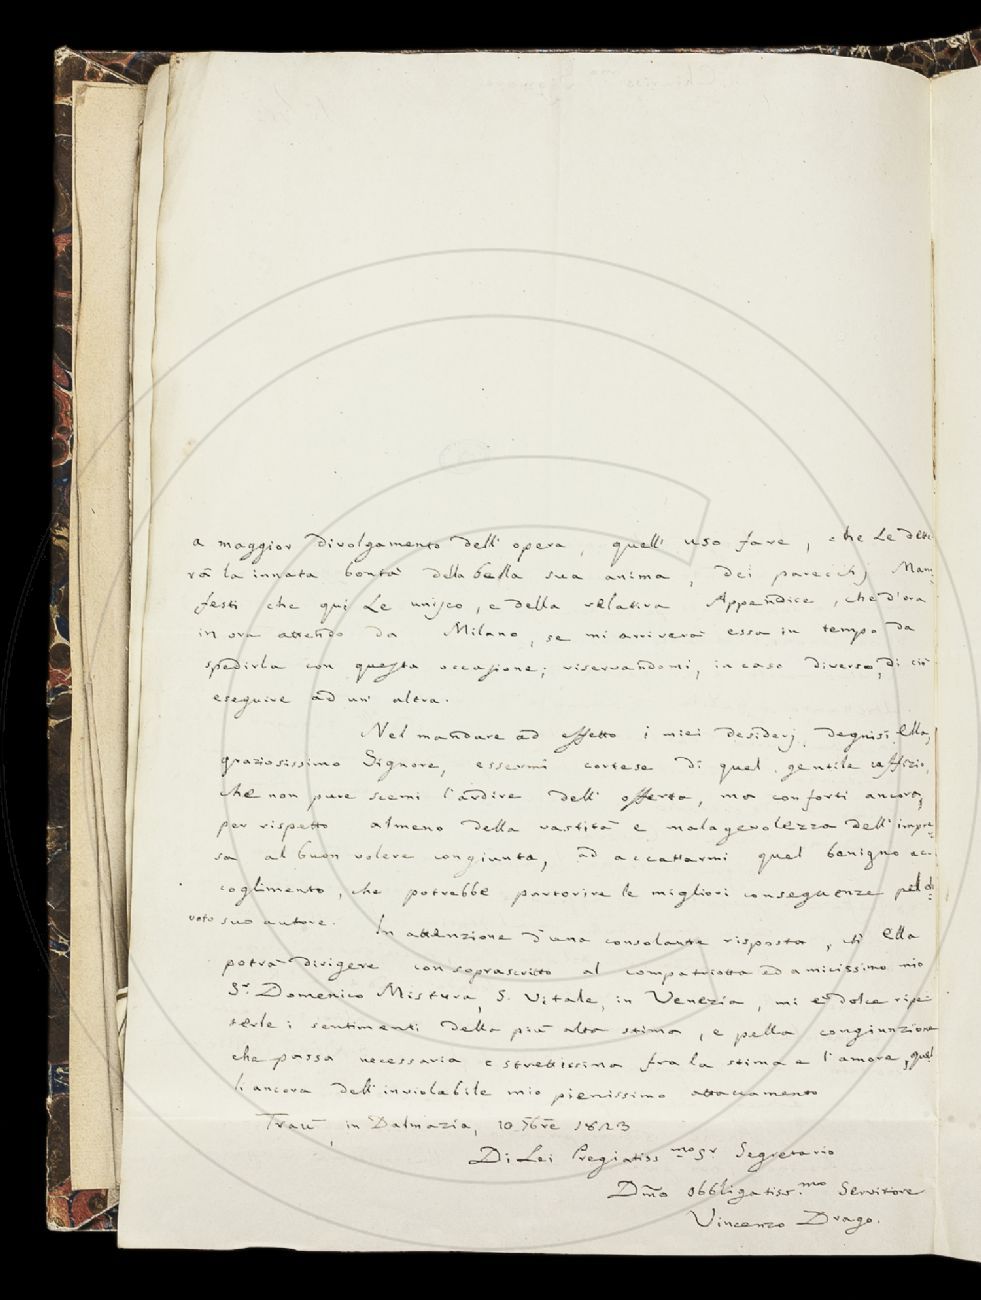 a maggior divolgamento dell' opera, quell' uso fare, che Le dette
rà la innata bontà della bella sua anima, dei parecchj Mani
festi che qui Le unisco, e della relativa Appendice, che d'ora
in ora attendo da Milano, se mi arriverà essa in tempo da
spedirla con questa occasione; riservandomi, in caso diverso, di ciò
eseguire ad un' altra.
Nel mandare ad effetto i miei desiderj, degnisi Ella,
graziosissimo Signore, essermi cortese di quel gentile uffizio,
che non pure scemi l'ardire dell' offerta, ma conforti ancora,
per rispetto almeno della vastità e malagevolezza dell' impre-
sa al buon volere congiunta, ad accattarmi quel benigno ac-
coglimento, che potrebbe partorire le migliori conseguenze pel di-
voto suo autore. In attenzione d'una consolante risposta, ch' Ella
potrà dirigere con soprascritto al compatriotta ed amicissimo mio
S.r Domenico Mistura, S. Vitale, in Venezia, mi è dolce ripe-
terle i sentimenti della più alta stima, e pella congiunzione
che passa necessaria e strettissima fra la stima e l'amore, quel-
li ancora dell' inviolabile mio pienissimo attaccamento
Traù, in Dalmazia, 10 Xbre 1823
Di Lei Pregiatiss.mo Sr Segretario
Dmo obbligatiss.mo Servitore
Vincenzo Drago.